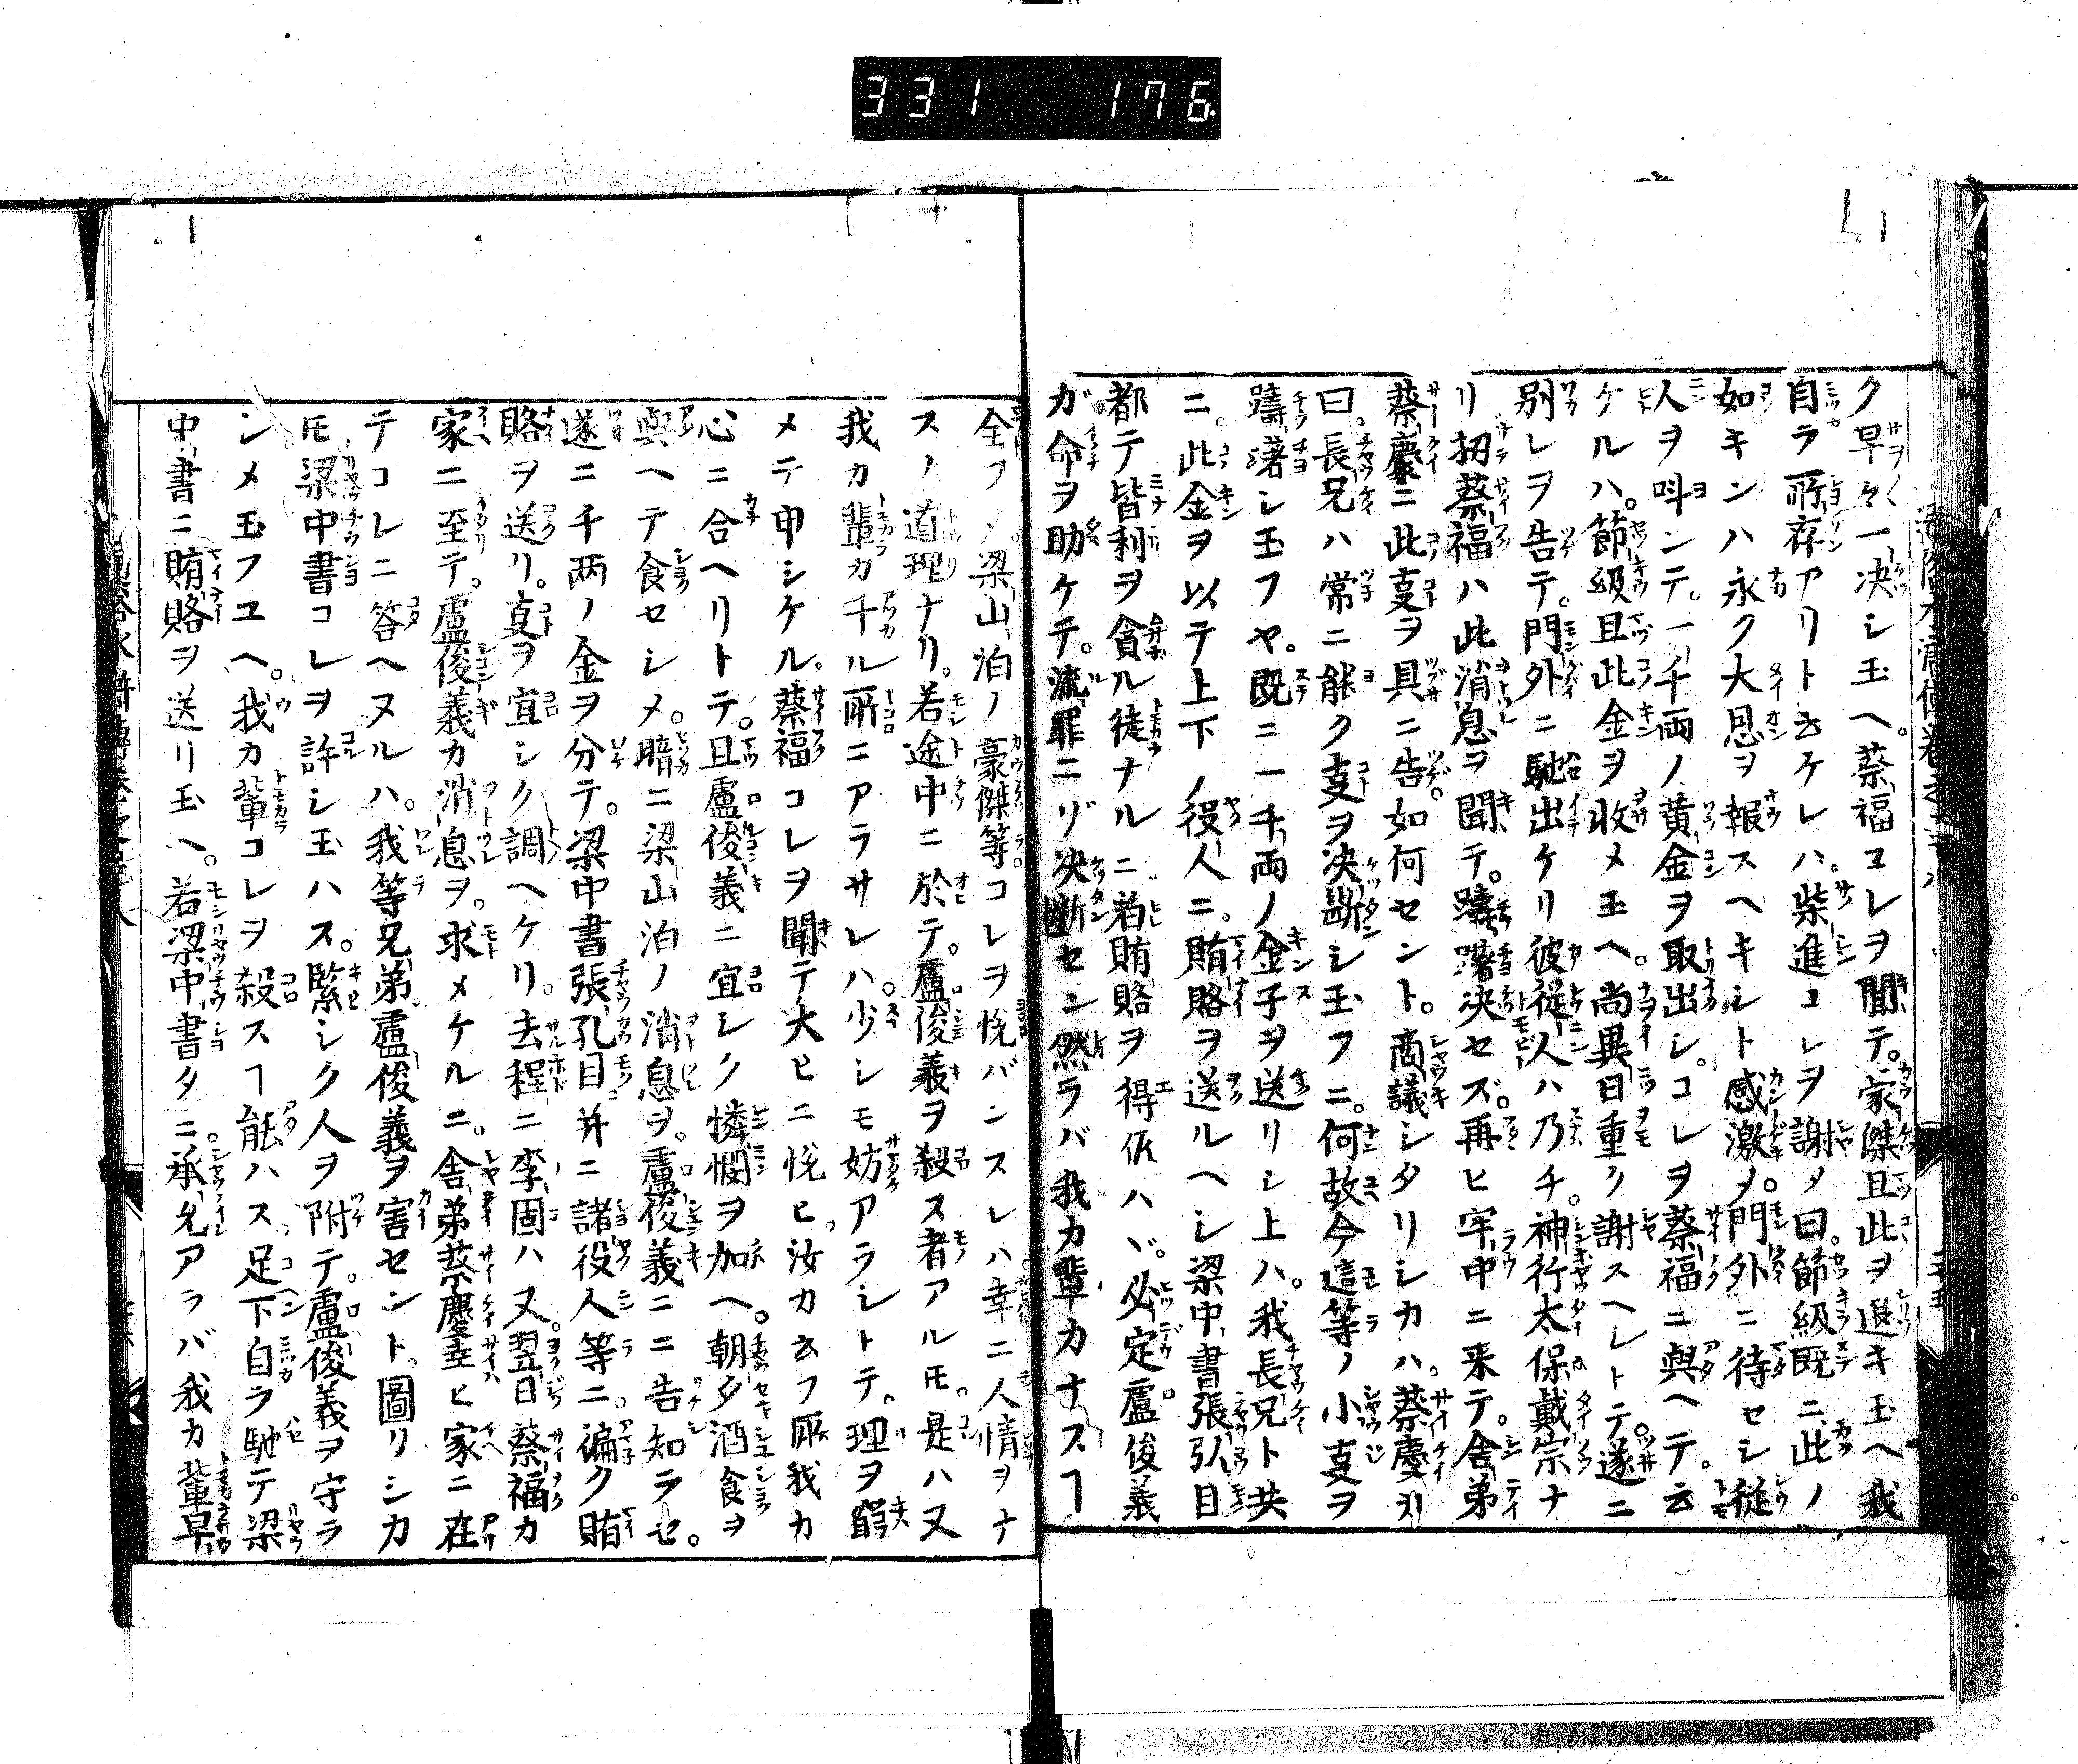 331 176
ク早々一决シ玉ヘ。蔡福コレヲ聞テ。家傑且此ヲ退キ玉ヘ我
自ラ所存アリト云ケレハ。柴進コレヲ謝メ曰。節級既ニ此ノ
如キンハ永ク大恩ヲ報スヘキシト感激メ。門外ニ待セシ従
人ヲ呌ンテ。一千両ノ黄金ヲ取出シ。コレヲ蔡福ニ與ヘテ。云
ケルハ。節級且此金ヲ收メ玉ヘ。尚異日重ク謝スヘレトテ。遂ニ
別レヲ告テ。門外ニ馳出ケリ彼従人ハ乃チ。神行太保戴宗ナ
リ扨蔡福ハ此消息ヲ聞テ。躊躇决セズ。再ヒ牢中ニ来テ。舎弟
蔡慶ニ此支ヲ具ニ告。如何セント。商議シタリシカハ。蔡慶カ
曰。長兄ハ常ニ能ク支ヲ决断シ玉フニ。何故今這等ノ小支ヲ
躊躇シ玉フヤ。既ニ一千両ノ金子ヲ送リシ上ハ。我長兄ト共
ニ。此金ヲ以テ上下ノ役人ニ。賄賂ヲ送ルヘシ梁中書張孔目
都テ皆利ヲ貪ル徒ナルニ若賄賂ヲ得氐ハヾ。必定。盧俊義
ガ命ヲ助ケテ。流罪ニゾ决断セン然ラバ我カ輩カナスヿ
全フメ。梁山泊ノ豪傑等コレヲ悦バンスレハ幸ニ人情ヲナ
スノ道理ナリ。若途中ニ於テ。盧俊義ヲ殺ス者アルモ。是ハ又
我カ輩カ干ル所ニアラサレハ。少シモ妨アラシトテ。理ヲ窮
メテ申シケル。蔡福コレヲ聞テ大ヒニ悦ヒ。汝カ云フ所我カ
心ニ合ヘリトテ。且盧俊義ニ宜シク憐憫ヲ加ヘ。朝夕酒食ヲ
與ヘテ食セシメ。暗ニ梁山泊ノ消息ヲ。盧俊義ニニ告知ラセ。
遂ニ千両ノ金ヲ分テ。梁中書張孔目并ニ諸役人等ニ。徧ク賄
賂ヲ送リ。支ヲ宜シク調ヘケリ。去程ニ李固ハ又。翌日蔡福カ
家ニ至テ。盧俊義カ消息ヲ。求メケルニ。舎弟蔡慶幸ヒ家ニ在
テコレニ答ヘヌルハ。我等兄弟盧俊義ヲ害セント。圖リシカ
㕝梁中書コレヲ許シ玉ハス。緊シク人ヲ附テ。盧俊義ヲ守ラ
ンメ玉フユヘ。我カ輩コレヲ殺スヿ能ハス。足下自ラ馳テ梁
中書ニ賄賂ヲ送リ玉ヘ。若梁中書タニ。承允アラバ我カ輩早